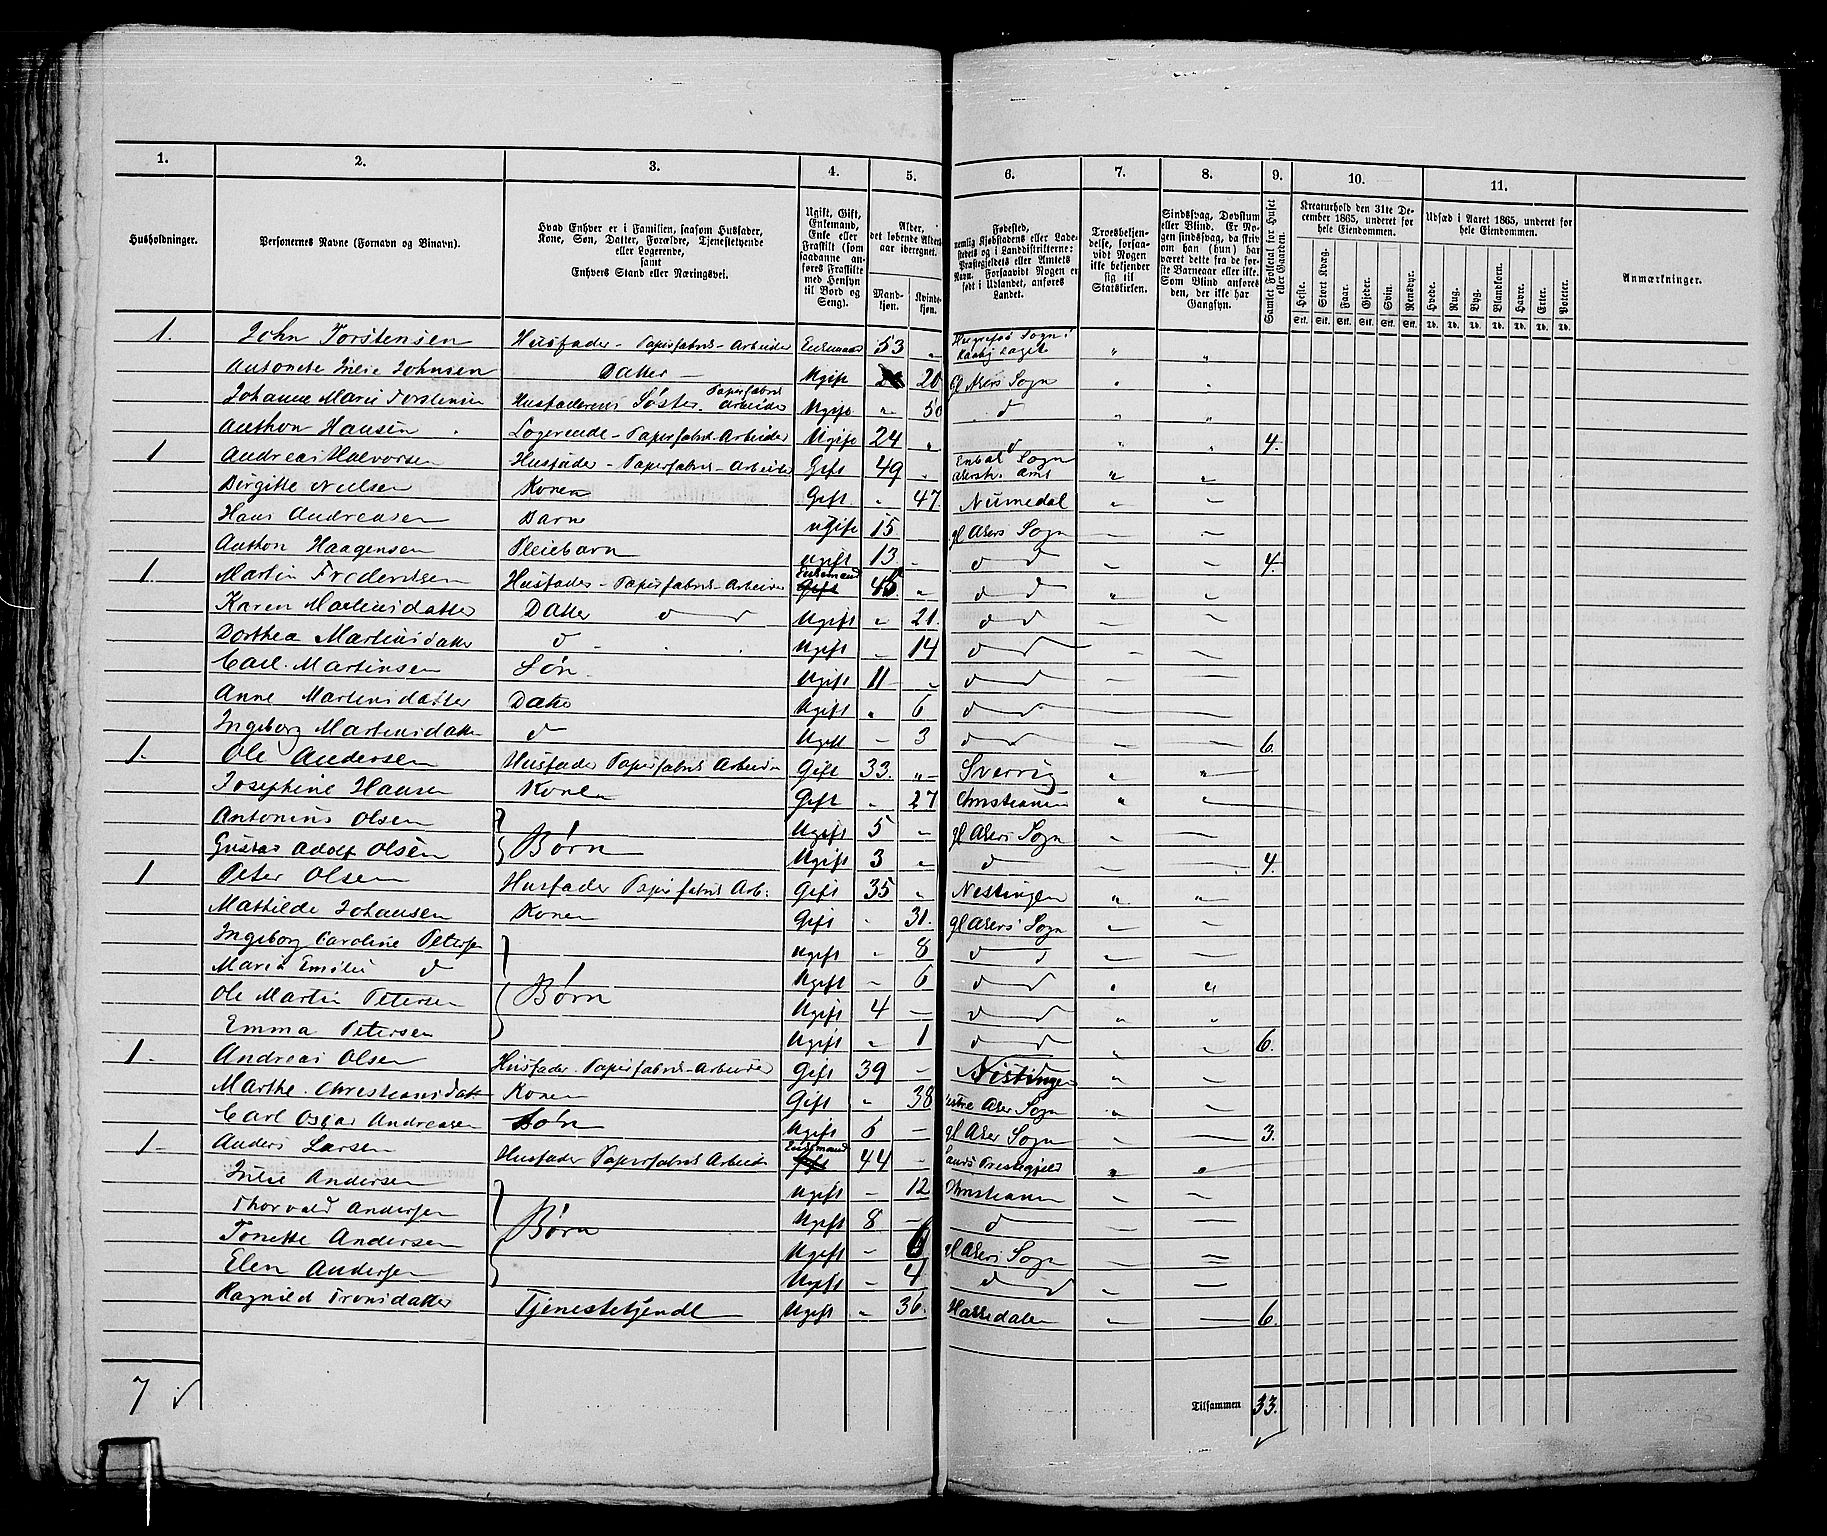 1. 2. 3. 4. 5. 6. 7. 8. 9. 10. 11.
Husholdninger.
Personernes Navne (Fornavn og Binavn).
Hvad Enhver er i Familien, saasom Husfader,
Kone, Søn, Datter, Forældre, Tjenestetyende
eller Logerende,
samt
Enhvers Stand eller Næringsvei.
Ugift, Gift,
Enkemand,
Enke eller
Fraskilt (som
saadanne an-
føres Fraskilte
med Hensyn
til Bord og
Seng).
Alder,
det løbende Alders-
aar iberegnet.
Mand-
kjøn.
Kvinde-
kjøn.
Fødested,
nemlig Kjøbstadens eller Lade-
stedets og i Landdistrikterne:
Præstegjeldets eller Amtets
Navn. Forsaavidt Nogen er
født i Udlandet, anføres
Landet.
Troesbekjen-
delse, forsaa-
vidt Nogen
ikke bekjender
sig til
Statskirken.
Sindssvag, Døvstum
eller Blind. Er No-
gen sindssvag, da skriv
om han (hun) har
været dette fra de før-
ste Barneaar eller ikke.
Som Blind anføres
den, der ikke har
Gangsyn.
Samlet Folketal for Huset
eller Gaarden.
Kreaturhold den 31te De-
cember 1865, underet for
hele Eiendommen.
Heste. Stort Kvæg. Faar. Gjeder. Svin. Rensdyr.
Stk. Stk. Stk. Stk. Stk. Stk.
Udsæd i Aaret 1865, underet for
hele Eiendommen.
Hvede. Rug. Byg. Blandkorn. Havre. Erter. Poteter.
Td. Td. Td. Td. Td. Td. Td.
Anmærkninger.
1. John Torstensen Husfader - Papirfabrik-Arbeider Enkemand 53 "
Antonete Julie Johnsen Datter - Ugift 20 gl Akers Sogn
Johanne Marie Torstensen Husfaderens Søster. Papirfabrik arbeider Ugift " 50 d
Anthon Hansen Logerende - Papirfabrik-Arbeider Ugift 24 " d 4.
1 Andreas Halvorsen Husfader - Papirfabrik-Arbeider Gift 49 " Enbak Sogn Akersh. Amt
Birgitte Nielsen Konen Gift " 47. Numedal
Hans Andreasen Barn ugift 15. gl Akers Sogn
Anthon Haagensen Pleiebarn ugift 13. d d 4.
1. Martin Fredriksen Husfader - Papirfabrik-Arbeider Enkemand 45 " d d
Karen Martinsdatter Datter d d Ugift " 21. d d
Dorthea Martinsdatter d Ugift - 14 d d
Carl Martinsen Søn Ugift 11 " d d
Anne Martinsdatter Datter Ugift " 6 d d
Ingeborg Martinsdatter d Ugift - 3 d d 6.
1. Ole Andersen Husfader Papirfabrik Arbeider Gift 33. " Sverrig
Josephine Hansen Konen Gift " 27 Christiania
Antonius Olsen Børn Ugift 5 " gl Akers Sogn
Gustav Adolf Olsen Ugift 3 " d 4.
1 Peter Olsen Husfader Papirfabrik Arb: Gift 35 " Nestingen
Mathilde Johansen Konen Gift " 31. gl Akers Sogn
Ingeborg Caroline Petersen Børn Ugift " 8 d d
Maria Emilie d Ugift - 6 d d
Ole Martin Petersen Ugift 4 - d d
Emma Petersen Ugift " 1 d d 6.
1. Andreas Olsen Husfader. Papirfabrik-Arbeider Gift 39 - Nestingen
Marthe Christiansdatt Konen Gift " 38 Vestre Aker Sogn
Carl Oskar Andreasen Søn Ugift 6 - gl Aker Sogn 3.
1. Anders Larsen Husfader Papirfabrik Arbeider Enkemand 44 - Præstegjeld
Julie Andersen Børn Ugift - 12 Christiania
Thorvald Andersen Ugift 8 - d
Tonette Andersen Ugift - 6 gl Akers Sogn
Elen Andersen Ugift - 4 d d
Ragnild Tronsdatter Tjenestetjende Ugift " 36. Halledalen 6.
7 Tilsammen 33.